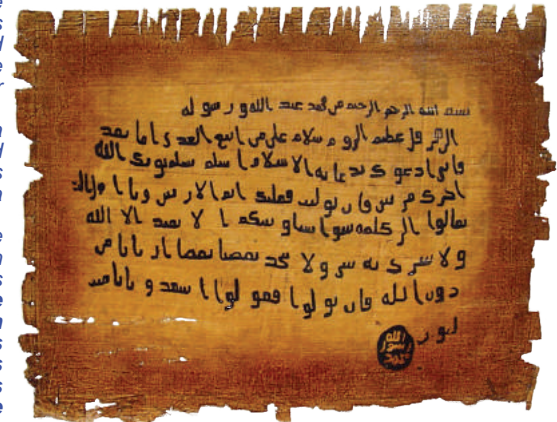 بسم الله الرحمن الرحيم من محمد عبد الله ورسوله
الى هرقل عظيم الروم سلام على من اتبع الهدى اما بعد
فاني ادعوك بدعاية الاسلام اسلم تسلم يوتك الله
اجرك مرتين فان توليت فعليك اثم الاريسين ويا
تعالوا الى كلمة سوا بيننا وبينكم الا نعبد الا الله
ولا نشرك به شيا ولا يتخذ بعضنا بعضا اربابا من
دون الله فان تولوا فقولوا اشهدوا بانا
الله
رسول
محمد